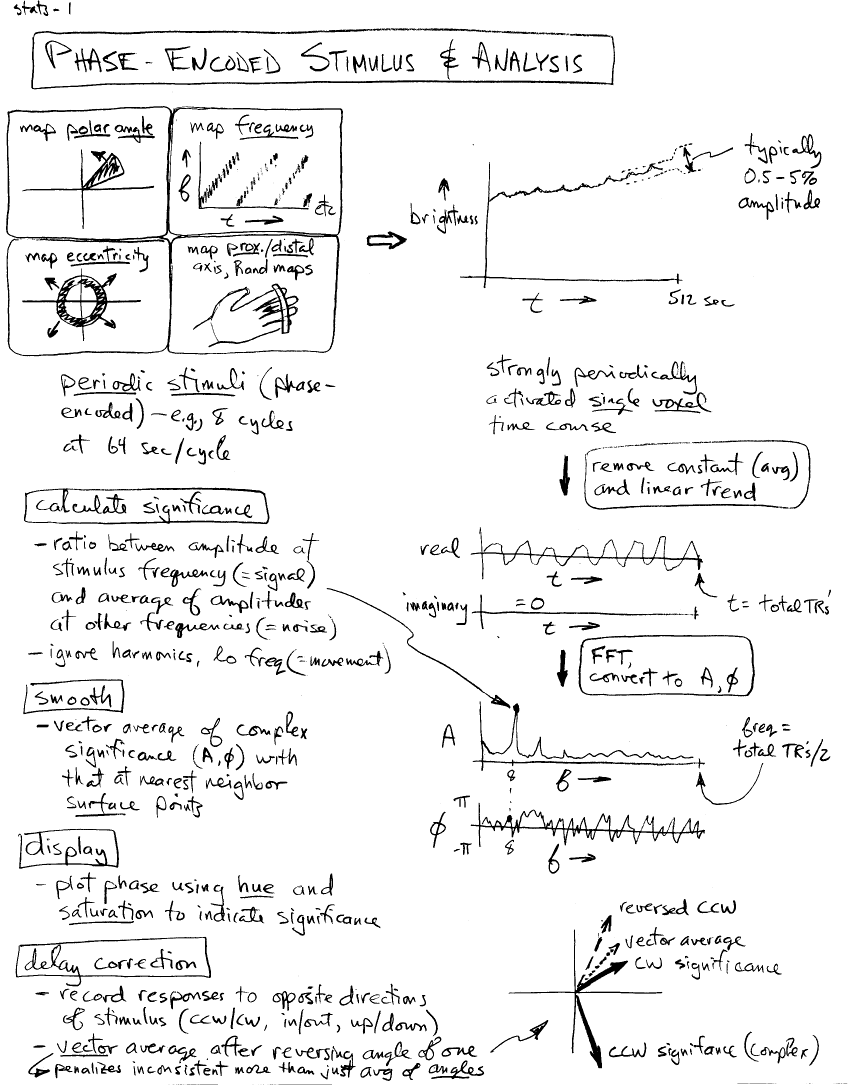 stats-1
PHASE-ENCODED STIMULUS & ANALYSIS
map polar angle
map frequency
f
t →
etc
map eccentricity
map prox./distal
axis, Rand maps
brightness
t →
512 sec
typically
0.5-5%
amplitude
periodic stimuli (phase-
encoded) – e.g., 8 cycles
at 64 sec/cycle
strongly periodically
activated single voxel
time course
remove constant (avg)
and linear trend
calculate significance
- ratio between amplitude at
stimulus frequency (= signal)
and average of amplitudes
at other frequencies (= noise)
- ignore harmonics, lo freq (= movement)
real
t →
imaginary
= 0
t →
t = total TR's
FFT,
convert to A, φ
smooth
- vector average of complex
significance (A, φ) with
that at nearest neighbor
surface points
A
8
f →
freq =
total TR's/2
φ
π
-π
8
f →
display
- plot phase using hue and
saturation to indicate significance
delay correction
- record responses to opposite directions
of stimulus (ccw/cw, in/out, up/down)
- vector average after reversing angle of one
↳ penalizes inconsistent more than just avg of angles
reversed CCW
vector average
CW significance
CCW signifance (complex)